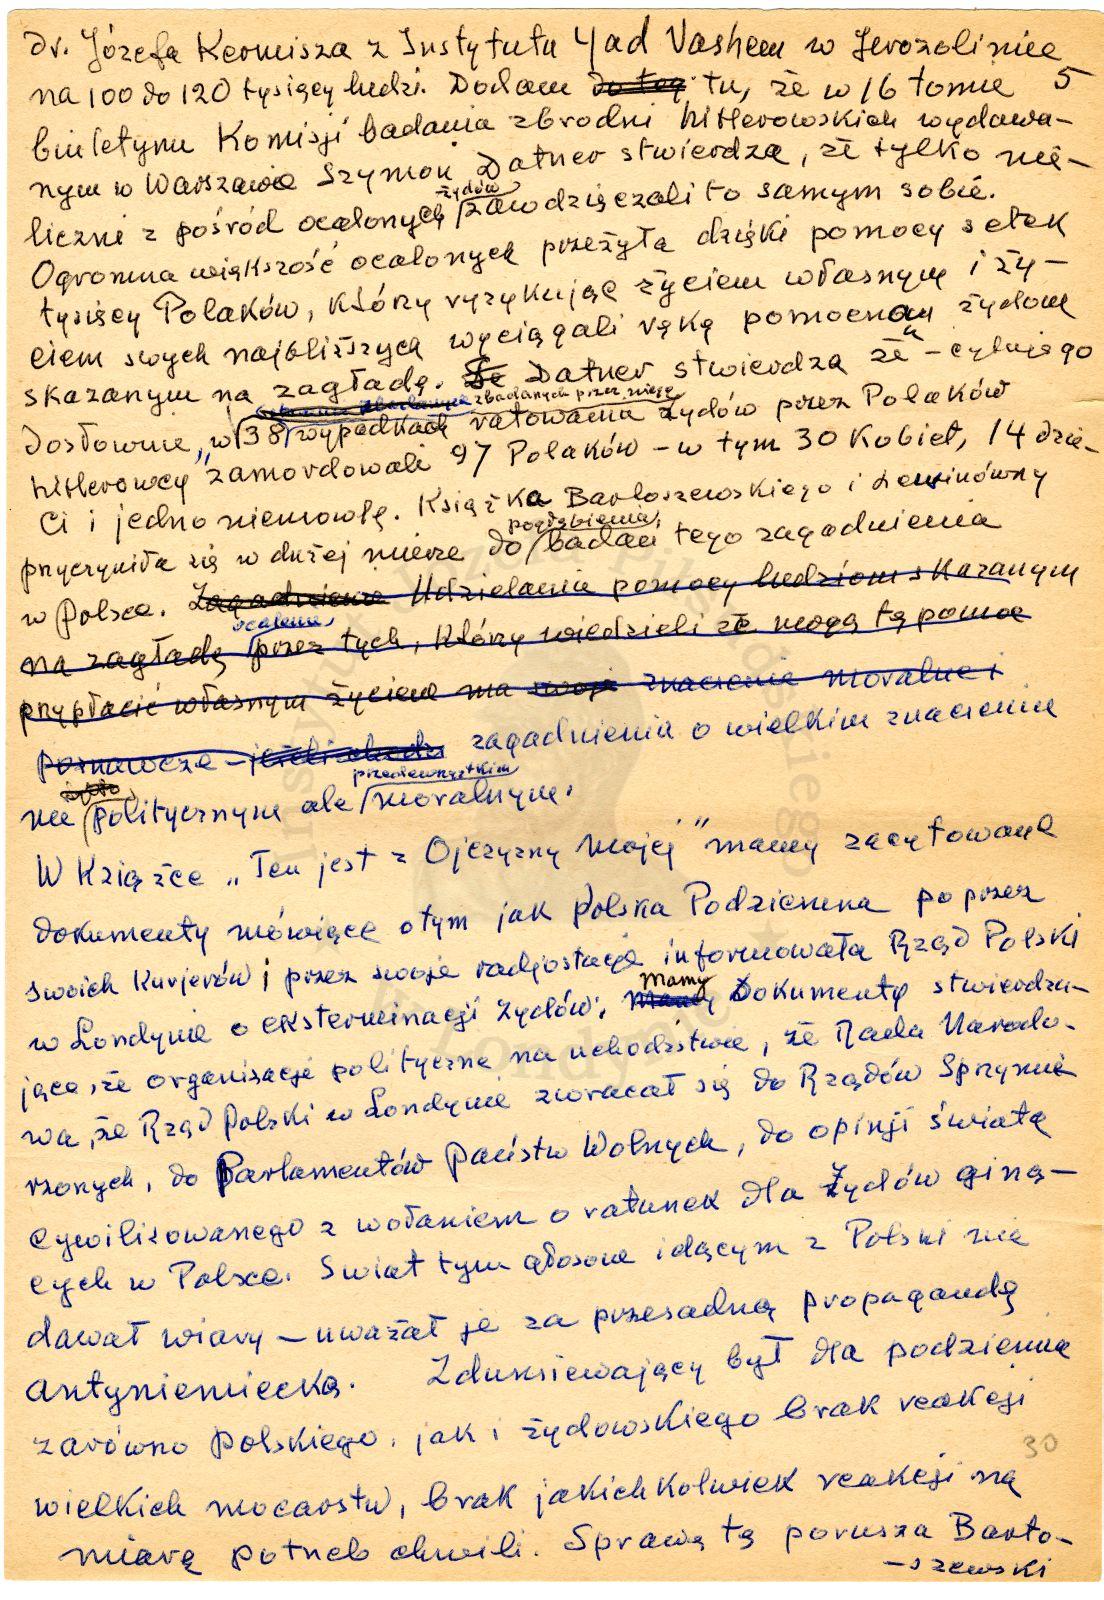 dr. Józefa Kermisza z Instytutu Yad Vashem w Jerozolimie
na 100 do 120 tysięcy ludzi. Dodam do tego tu, że w 16 tomie 5
biuletynu Komisji badania zbrodni hitlerowskich wydawa-
nym w Warszawie Szymon Datner stwierdza, że tylko nie-
żydów
liczni z pośród ocalonych zawdzięczali to samym sobie.
Ogromna większość ocalonych przeżyła dzięki pomocy setek
tysięcy Polaków, którzy ryzykując życiem własnym i ży-
ciem swych najbliższych wyciągali rękę pomocną żydom
skazanym na zagładę. Że Datner stwierdza że - cytuję go
zbadanych przez niego
dosłownie, "w 38 wypadkach ratowania żydów przez Polaków
hitlerowcy zamordowali 97 Polaków - w tym 30 kobiet, 14 dzie-
ci i jedno niemowlę. Książka Bartoszewskiego i Lewinówny
pogłębienia
przyczyniła się w dużej mierze do badań tego zagadnienia
w Polsce. Zagadnienie Udzielania pomocy ludziom skazanym
ocalenia
na zagładę przez tych, którzy wiedzieli że mogą tą pomoc
przypłacić własnym życiem ma swoje znaczenie moralne i
poznawcze - jeżeli chodzi zagadnienia o wielkim znaczeniu
tylko przedewszystkim
nie politycznym ale moralnym.
W Książce „Ten jest z Ojczyzny mojej" mamy zacytowane
dokumenty mówiące o tym jak Polska Podziemna poprzez
swoich Kurjerów i przez swoje radjostacje informowała Rząd Polski
Mamy
w Londynie o eksterminacji żydów, Mamy Dokumenty stwierdza-
jące, że organizacje polityczne na uchodźstwie, że Rada Narodo-
wa, że Rząd Polski w Londynie zwracał się do Rządów Sprzymie
rzonych, do Parlamentów Państw Wolnych, do opinji świata
cywilizowanego z wołaniem o ratunek dla Żydów giną-
cych w Polsce. Swiat tym głosom idącym z Polski nie
dawał wiary - uważał je za przesadną propagandę
antyniemiecką. Zdumiewający był dla podziemia
zarówno polskiego, jak i żydowskiego brak reakcji
30
wielkich mocarstw, brak jakichkolwiek reakcji na
miarę potrzeb chwili. Sprawę tą porusza Barto-
- szewski